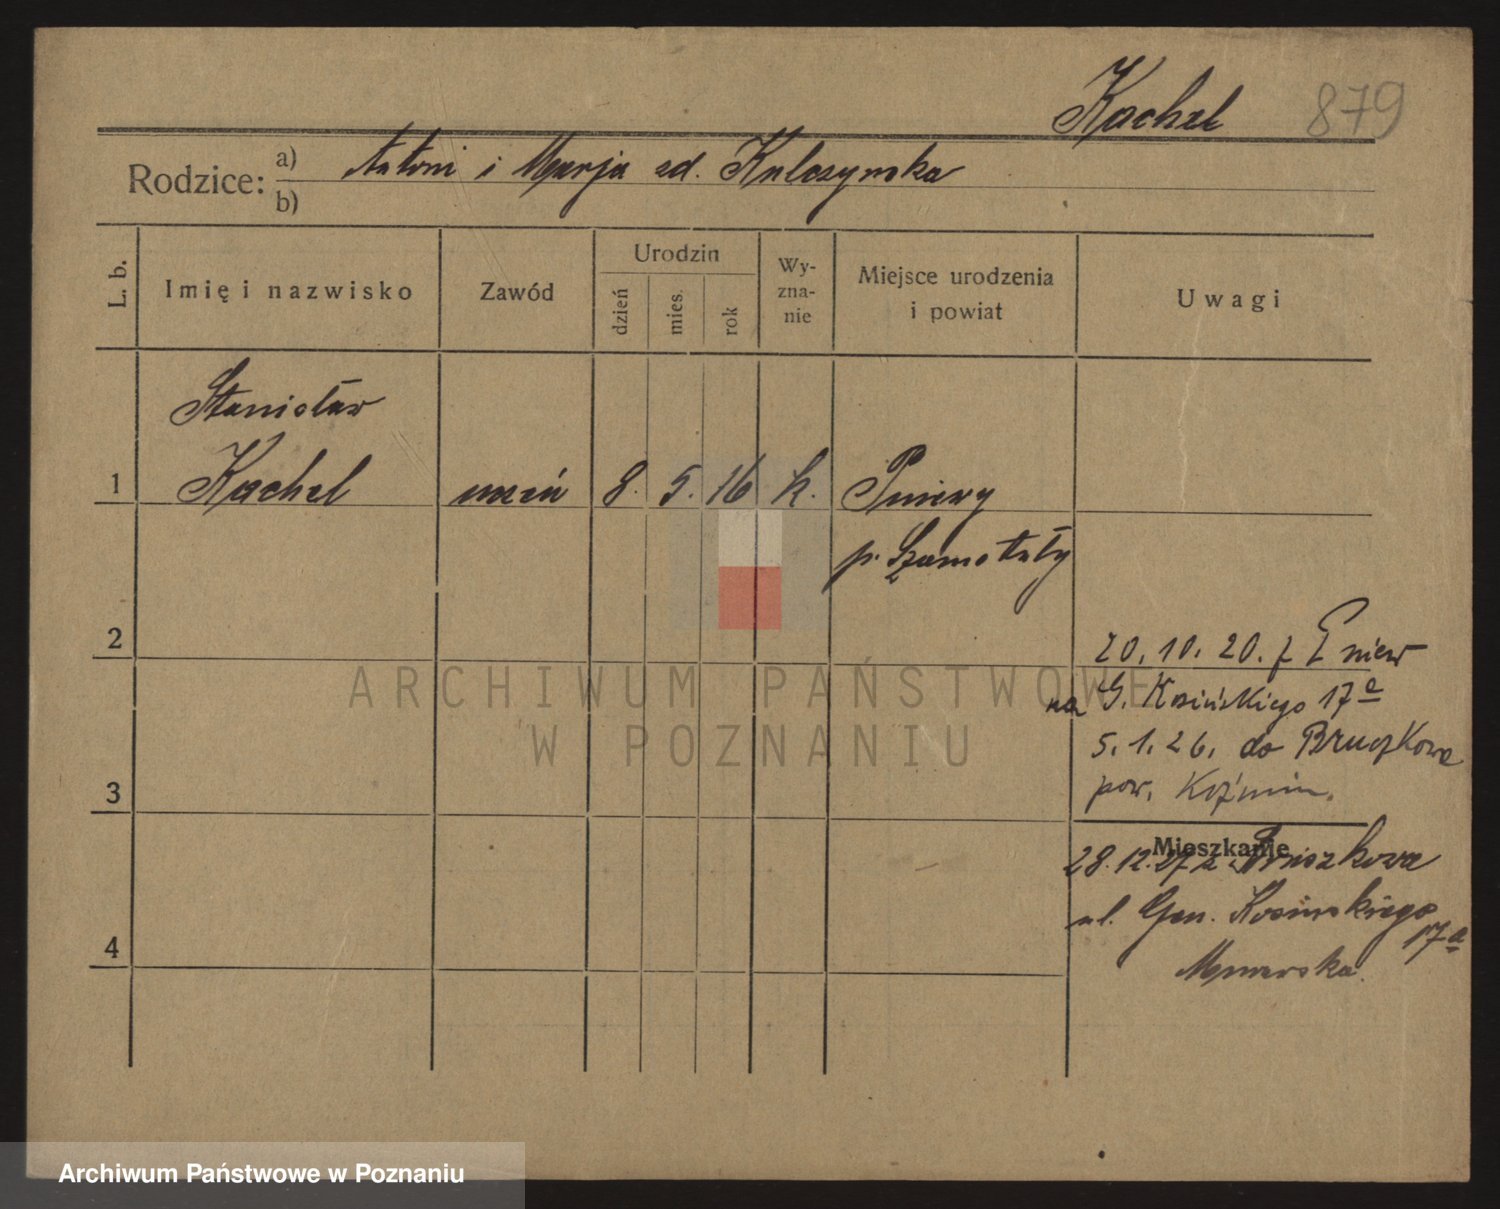 Kachel 879
Rodzice: a) Antoni i Marja zd. Kulczynska
b)
L. b. Imię i nazwisko Zawód Urodzin dzień mies. rok Wy-zna-nie Miejsce urodzenia i powiat Uwagi
Stanisław
1 Kachel uczeń 8. 5. 16 k. Pniewy
p. Szamotuły
2
20. 10. 20. z Pniew
na G. Kosińskiego 17a
5. 1. 26. do Bruczkowa
3 pow. Koźmin.
Mieszkanie
28.12.27 z Bruczkowa
ul. Gen. Kosinskiego
17a
4
ARCHIWUM PAŃSTWOWE
W POZNANIU
Archiwum Państwowe w Poznaniu